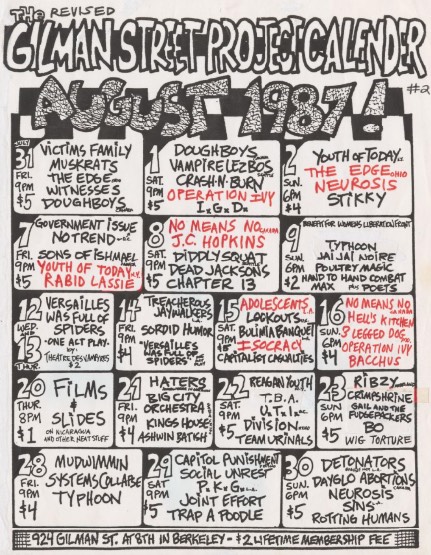 THE REVISED
GILMAN STREET PROJECT CALENDER
AUGUST 1987! #2
JULY
31
FRI.
9PM
$5
VICTIMS FAMILY
MUSKRATS
THE EDGE
WITNESSES
DOUGHBOYS
1
SAT.
9PM
$5
DOUGHBOYS
VAMPIRE LEZBOS
CRASH·N·BURN
OPERATION IVY
2
SUN.
6PM
$4
YOUTH OF TODAY
THE EDGE OHIO
NEUROSIS
STIKKY
7
FRI.
9PM
$5
GOVERNMENT ISSUE
NO TREND
SONS OF ISHMAEL
YOUTH OF TODAY N.Y.
RABID LASSIE
8
SAT.
9PM
$5
NO MEANS NO
J.C. HOPKINS
DIDDLY SQUAT
DEAD JACKSONS
CHAPTER 13
9
SUN.
6PM
$2
BENEFIT FOR WOMENS LIBERATION FRONT
TYPHOON
JAI JAI NOIRE
POULTRY MAGIC
HAND TO HAND COMBAT
MAX PLUS POETS
12
WED.
&
13
THUR.
VERSAILLES
WAS FULL OF
SPIDERS
·ONE ACT PLAY·
BY:
THEATRE DES VAMPYRES
$2
14
FRI.
9PM
$4
TREACHEROUS
JAYWALKERS
SORDID HUMOR
"VERSAILLES
WAS FULL OF
SPIDERS"
15
SAT.
9PM
$5
ADOLESCENTS L.A.
LOCKOUTS
BULIMIA BANQUET
ISOCRACY
CAPITALIST CASUALTIES
16
SUN.
6PM
$4
NO MEANS NO
HELL'S KITCHEN
3 LEGGED DOG
OPERATION IVY
BACCHUS
20
THUR.
8PM
$1
FILMS
&
SLIDES
ON NICARAGUA
AND OTHER NEAT STUFF
21
FRI.
9PM
$4
HATERS
BIG CITY
ORCHESTRA
KINGS HOUSE
ASHWIN BATISH
22
SAT.
9PM
$5
REAGAN YOUTH
T.B.A.
U.T.I.
DIVISION
TEAM URINALS
23
SUN
6PM
$5
RIBZY
CRIMPSHRINE
GAIL AND THE
FUDGEPACKERS
BO
WIG TORTURE
28
FRI.
9PM
$4
MUDWIMMIN
SYSTEMS COLLABE
TYPHOON
29
SAT
9PM
$5
CAPITOL PUNISHMENT
SOCIAL UNREST
JOINT EFFORT
TRAP A POODLE
30
SUN.
6PM
$5
DETONATORS
DAYGLO ABORTIONS
NEUROSIS
SINS
ROTTING HUMANS
924 GILMAN ST. AT 8TH IN BERKELEY - $2 LIFETIME MEMBERSHIP FEE